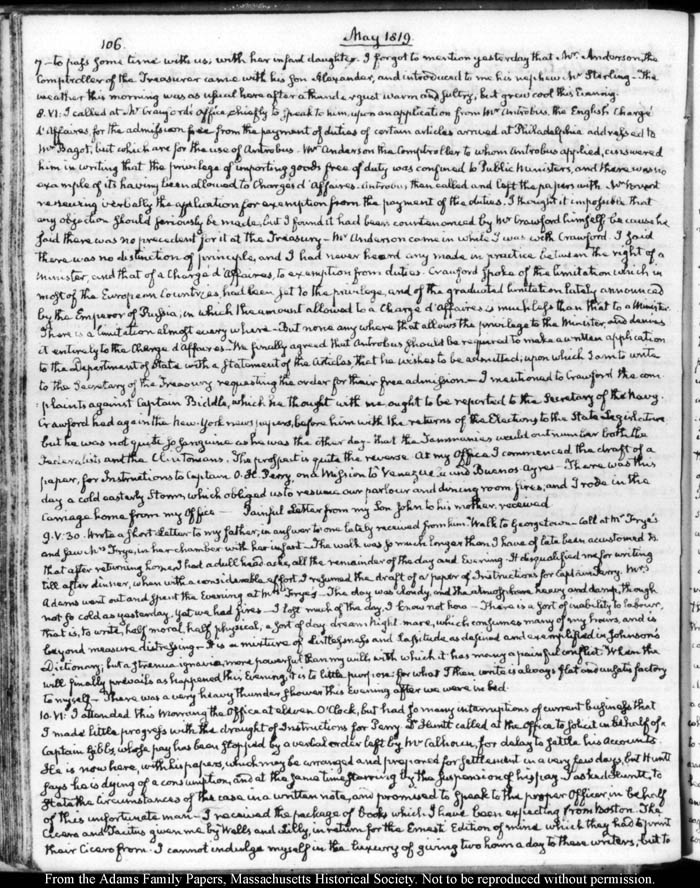 106.
May 1819.
7 — to pass some time with us; with her infant daughter. I forgot to mention yesterday that Mr Anderson, the
Comptroller of the Treasurer came with his Son Alexander, and introduced to me his nephew Mr Sterling — The
weather this morning was as usual here after a thunder gust warm and sultry, but grew cool this Evening.
8. VI. I called at Mr Crawford's Office chiefly to speak to him, upon an application from Mr Antrobus, the English Chargé
d'Affaires, for the admission free from the payment of duties of certain articles arrived at Philadelphia addressed to
Mr Bagot; but which are for the use of Antrobus. Mr Anderson the Comptroller to whom Antrobus applied, answered
him in writing that the privilege of importing goods free of duty was confined to Public Ministers, and there was no
example of its having been allowed to Chargés d'Affaires. Antrobus then called and left the papers with Mr
renewing verbally the application for exemption from the payment of the duties. I thought it impossible that
any objection should seriously be made, but I found it had been countenanced by Mr Crawford himself because he
said there was no precedent for it at the Treasury — Mr Anderson came in while I was with Crawford. I said
there was no distinction of principle, and I had never heard any made in practice between the right of a
Minister, and that of a Chargé d'Affaires, to exemption from duties. Crawford spoke of the limitation which in
most of the European Countries, had been set to the privilege, and of the graduated limitation lately announced
by the Emperor of Russia, in which the amount allowed to a Chargé d'Affaires is much less than that to a Minister.
There is a limitation almost every where — But none any where that allows the privilege to the Minister, and denies
it entirely to the Chargé d'Affaires — We finally agreed that Antrobus should be required to make a written application
to the Department of State with a Statement of the Articles that he wishes to be admitted; upon which I am to write
to the Secretary of the Treasury requesting the order for their free admission — I mentioned to Crawford the com-
plaints against Captain Biddle, which he thought with me ought to be reported to the Secretary of the Navy.
Crawford had again the New-York newspapers, before him with the returns of the Elections to the State Legislature
but he was not quite so sanguine as he was the other day — that the Tammanies would outnumber both the
Federalists and the Clintonians. The prospect is quite the reverse. At my Office I commenced the draft of a
paper, for Instructions to Captain O. H. Perry, on a Mission to Venezuela and Buenos-Ayres — There was this
day a cold easterly Storm, which obliged us to resume our parlour and dining room fires, and I rode in the
Carriage home from my Office — Painful Letter from my Son John to his mother, received
9. V:30. Wrote a short Letter to my father; in answer to one lately received from him. Walk to Georgetown — Call at Mr Frye's
and saw Mrs Frye, in her chamber with her infant — The walk was so much longer than I have of late been accustomed to
that after returning home, I had a dull head-ache, all the remainder of the day and Evening — It disqualified me for writing
till after dinner, when with a considerable effort I resumed the draft of a paper of Instructions for Captain Perry. Mrs
Adams went out and spent the Evening at Mr Frye's — The day was cloudy, and the atmosphere heavy and damp, though
not so cold as yesterday. Yet we had fires — I lost much of the day, I know not how — There is a sort of inability to labour,
that is, to write, half moral, half physical; a sort of day-dream night-mare, which consumes many of my hours, and is
beyond measure distressing — It is a mixture of Listlessness and Lassitude as defined and exemplified in Johnson's
Dictionary; but a strenua ignavia, more powerful than my will; with which it has many a painful conflict. When the
will finally prevails as happened this Evening, it is to little purpose: for what I then write is always flat and unsatisfactory
to myself — There was a very heavy thunder shower this Evening after we were in bed.
10. VI: I attended this Morning the Office at eleven O'Clock, but had so many interruptions of current business that
I made little progress with the draught of Instructions for Perry. Dr Hunt called at the Office to solicit in behalf of a
Captain Gibbs, whose pay has been stopped by a verbal order left by Mr Calhoun, for delay to settle his accounts.
He is now here, with his papers, which may be arranged and prepared for settlement in a very few days, but Hunt
says he is dying of a consumption, and at the same time starving by the suspension of his pay. I asked Hunt, to
state the circumstances of this case in a written note, and promised to speak to the proper Officer in behalf
of this unfortunate man — I received the package of books which I have been expecting from Boston. The
Cicero and Tacitus given me by Wells and Lilly, in return for the Ernesti Edition of mine which they had to print
their Cicero from. I cannot indulge myself in the luxury of giving two hours a day to these writers; but to
From the Adams Family Papers, Massachusetts Historical Society. Not to be reproduced without permission.